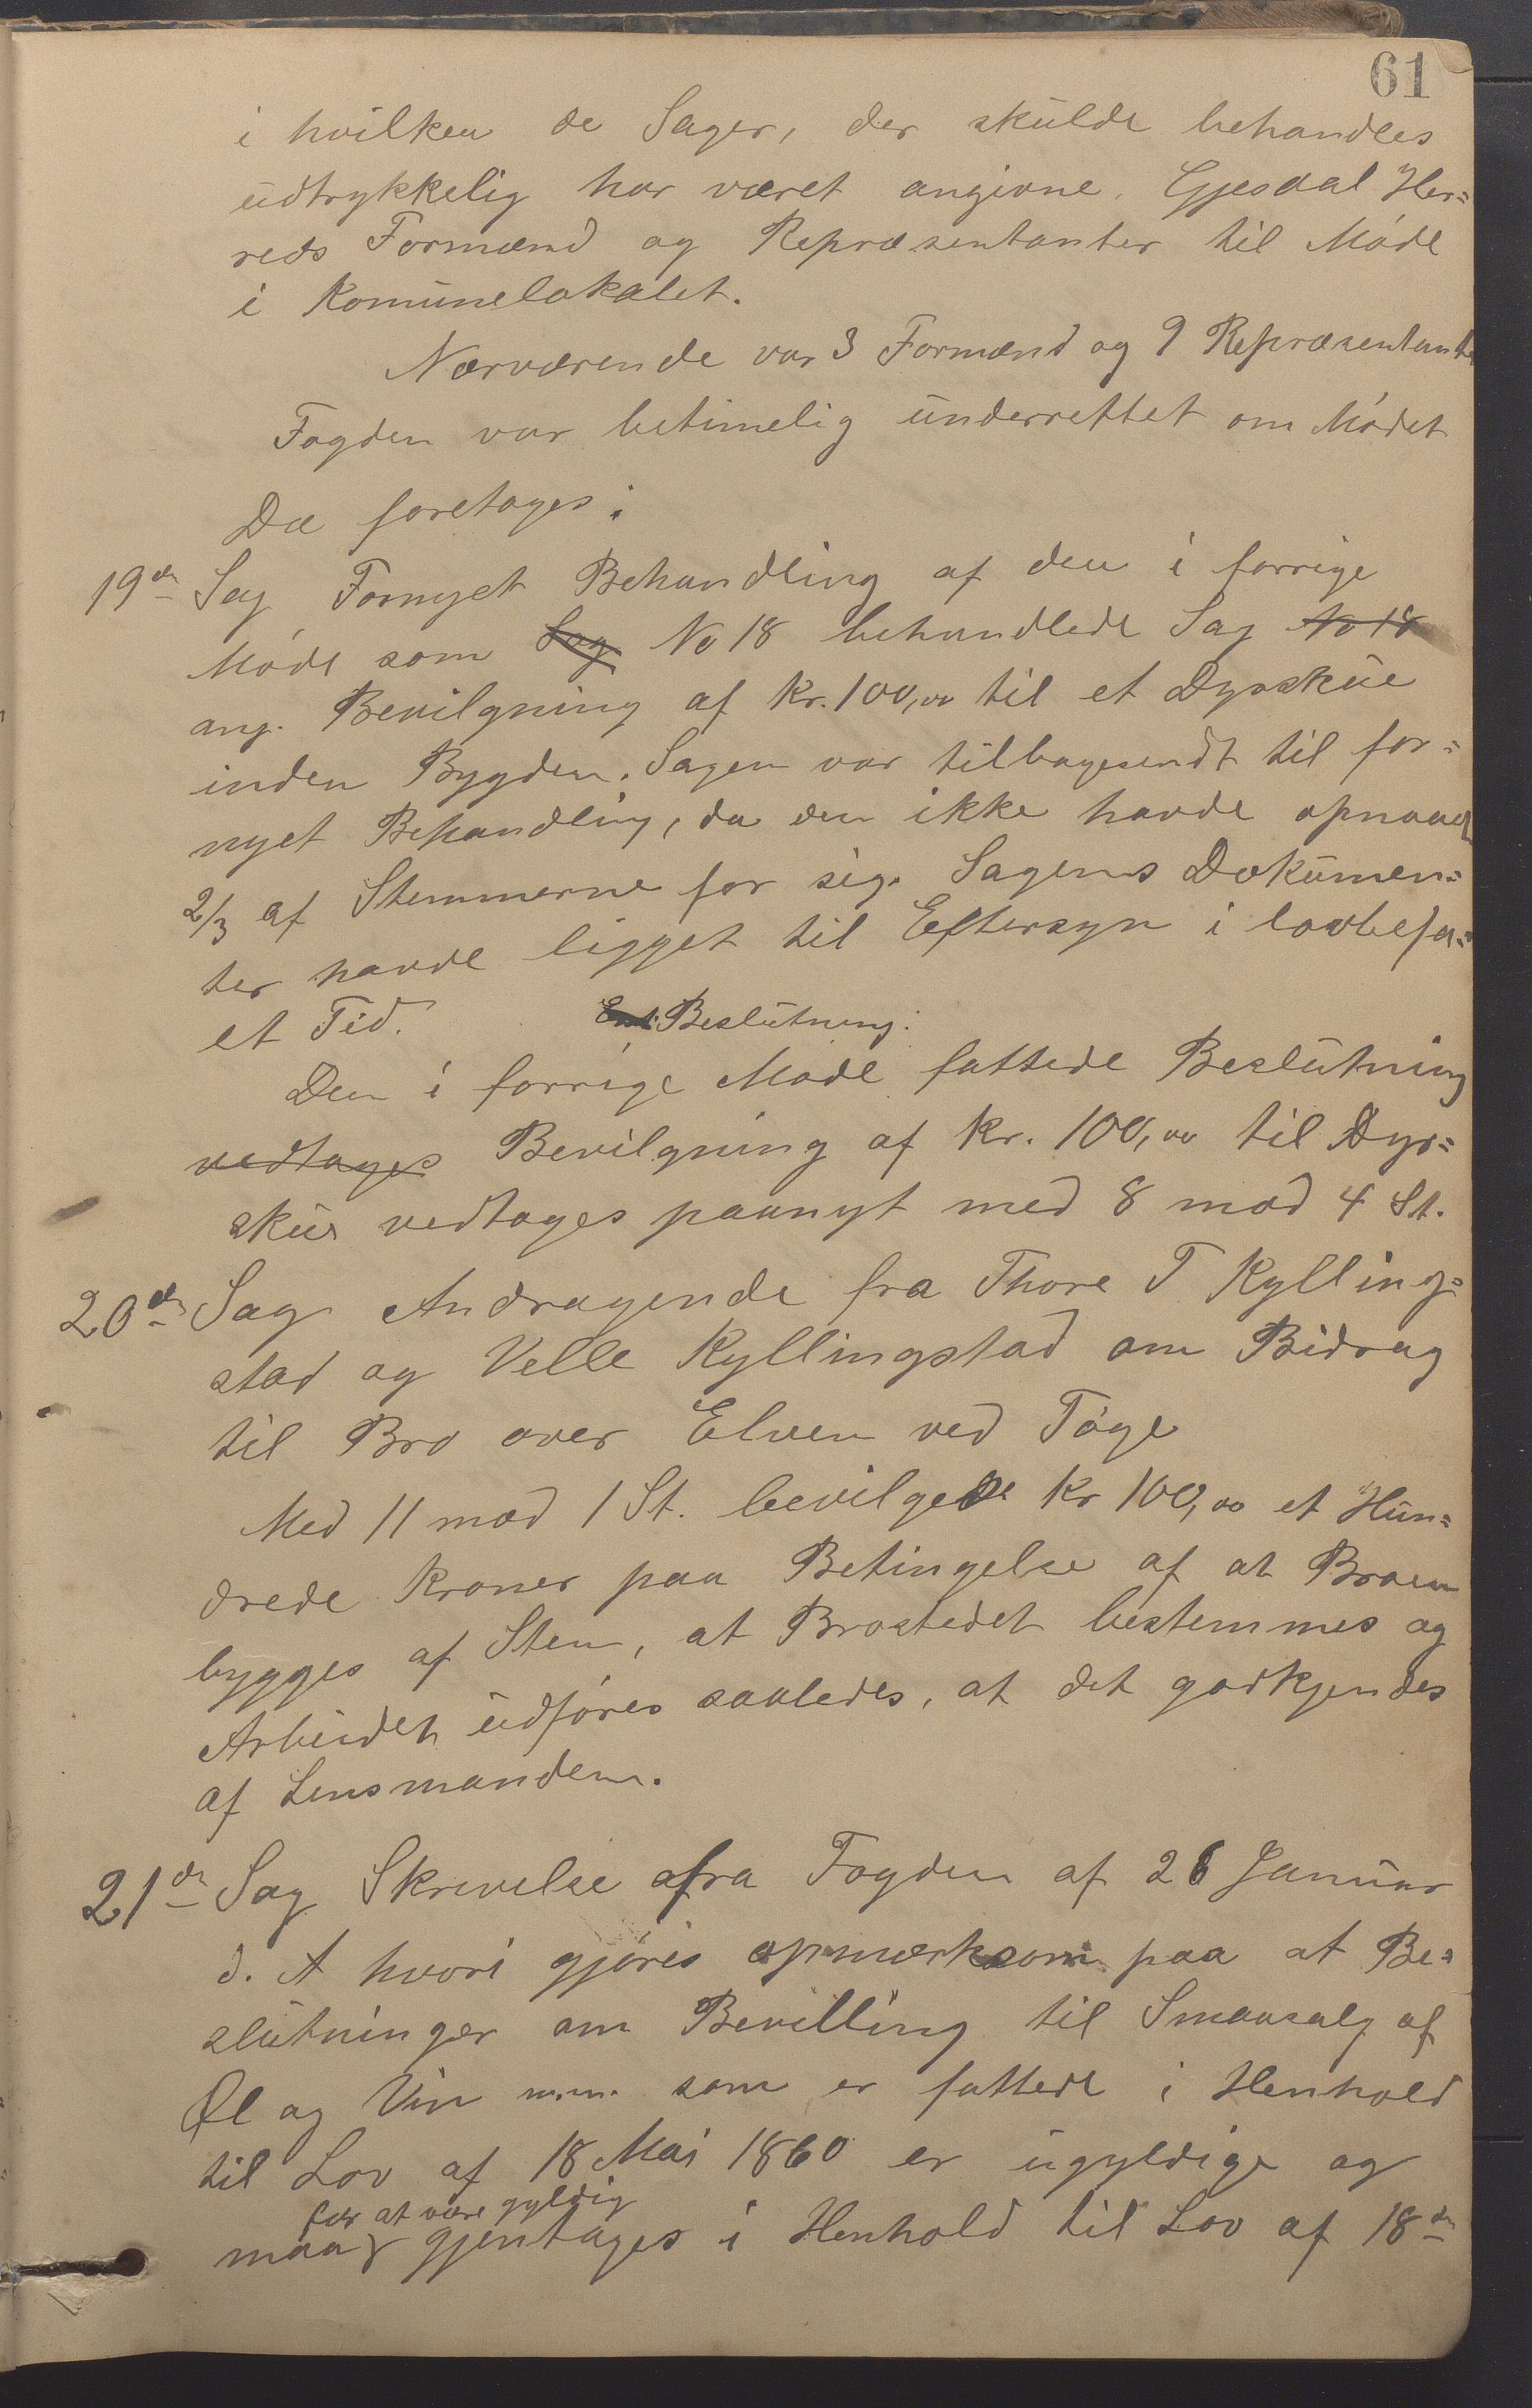 61
i hvilken de Sager, der skulde behandles
udtrykkelig har været angivne, Gjesdal Her=
reds Formænd og Repræsentanter til Møde
i Komunelokalet.
Nærværende var 3 Formænd og 9 Repræsentanter
Fogden var betimelig underrettet om Mødet
Da foretoges:
19de Sag Fornyet Behandling af den i forrige
Møde som Sag No 18 behandlede Sag No 18
ang. Bevilgning af Kr. 100,00 til et Dyrskue
inden Bygden. Sagen var tilbagesendt til for=
nyet Behandling, da den ikke havde opnaaet
2/3 af Stemmerne for sig. Sagens Dokumen=
ter havde ligget til Eftersyn i lovbefa=
et Tid. Ent: Beslutning:
Den i forrige Møde fattede Beslutning
vedtages Bevilgning af Kr. 100,00 til Dyr=
skue vedtages paanyt med 8 mod 4 St.
20de Sag Andragende fra Thore T Kylling=
stad og Velle Kyllingstad om Bidrag
til Bro over Elven ved Töge
Med 11 mod 1 St. bevilgede Kr 100,00 et Hun=
drede Kroner paa Betingelse af at Broen
bygges af Sten, at Brostedet bestemmes og
Arbeidet udføres saaledes, at det godkjendes
af Lensmanden.
21de Sag Skrivelse fra Fogden af 26 Januar
d. A hvori gjøres opmærksom paa at Be=
slutninger om Bevilling til Smaasalg af
Øl og Vin m.m. som er fattede i Henhold
til Lov af 18 Mai 1860 er ugyldige og
for at være gyldig
maa gjentages i Henhold til Lov af 18de